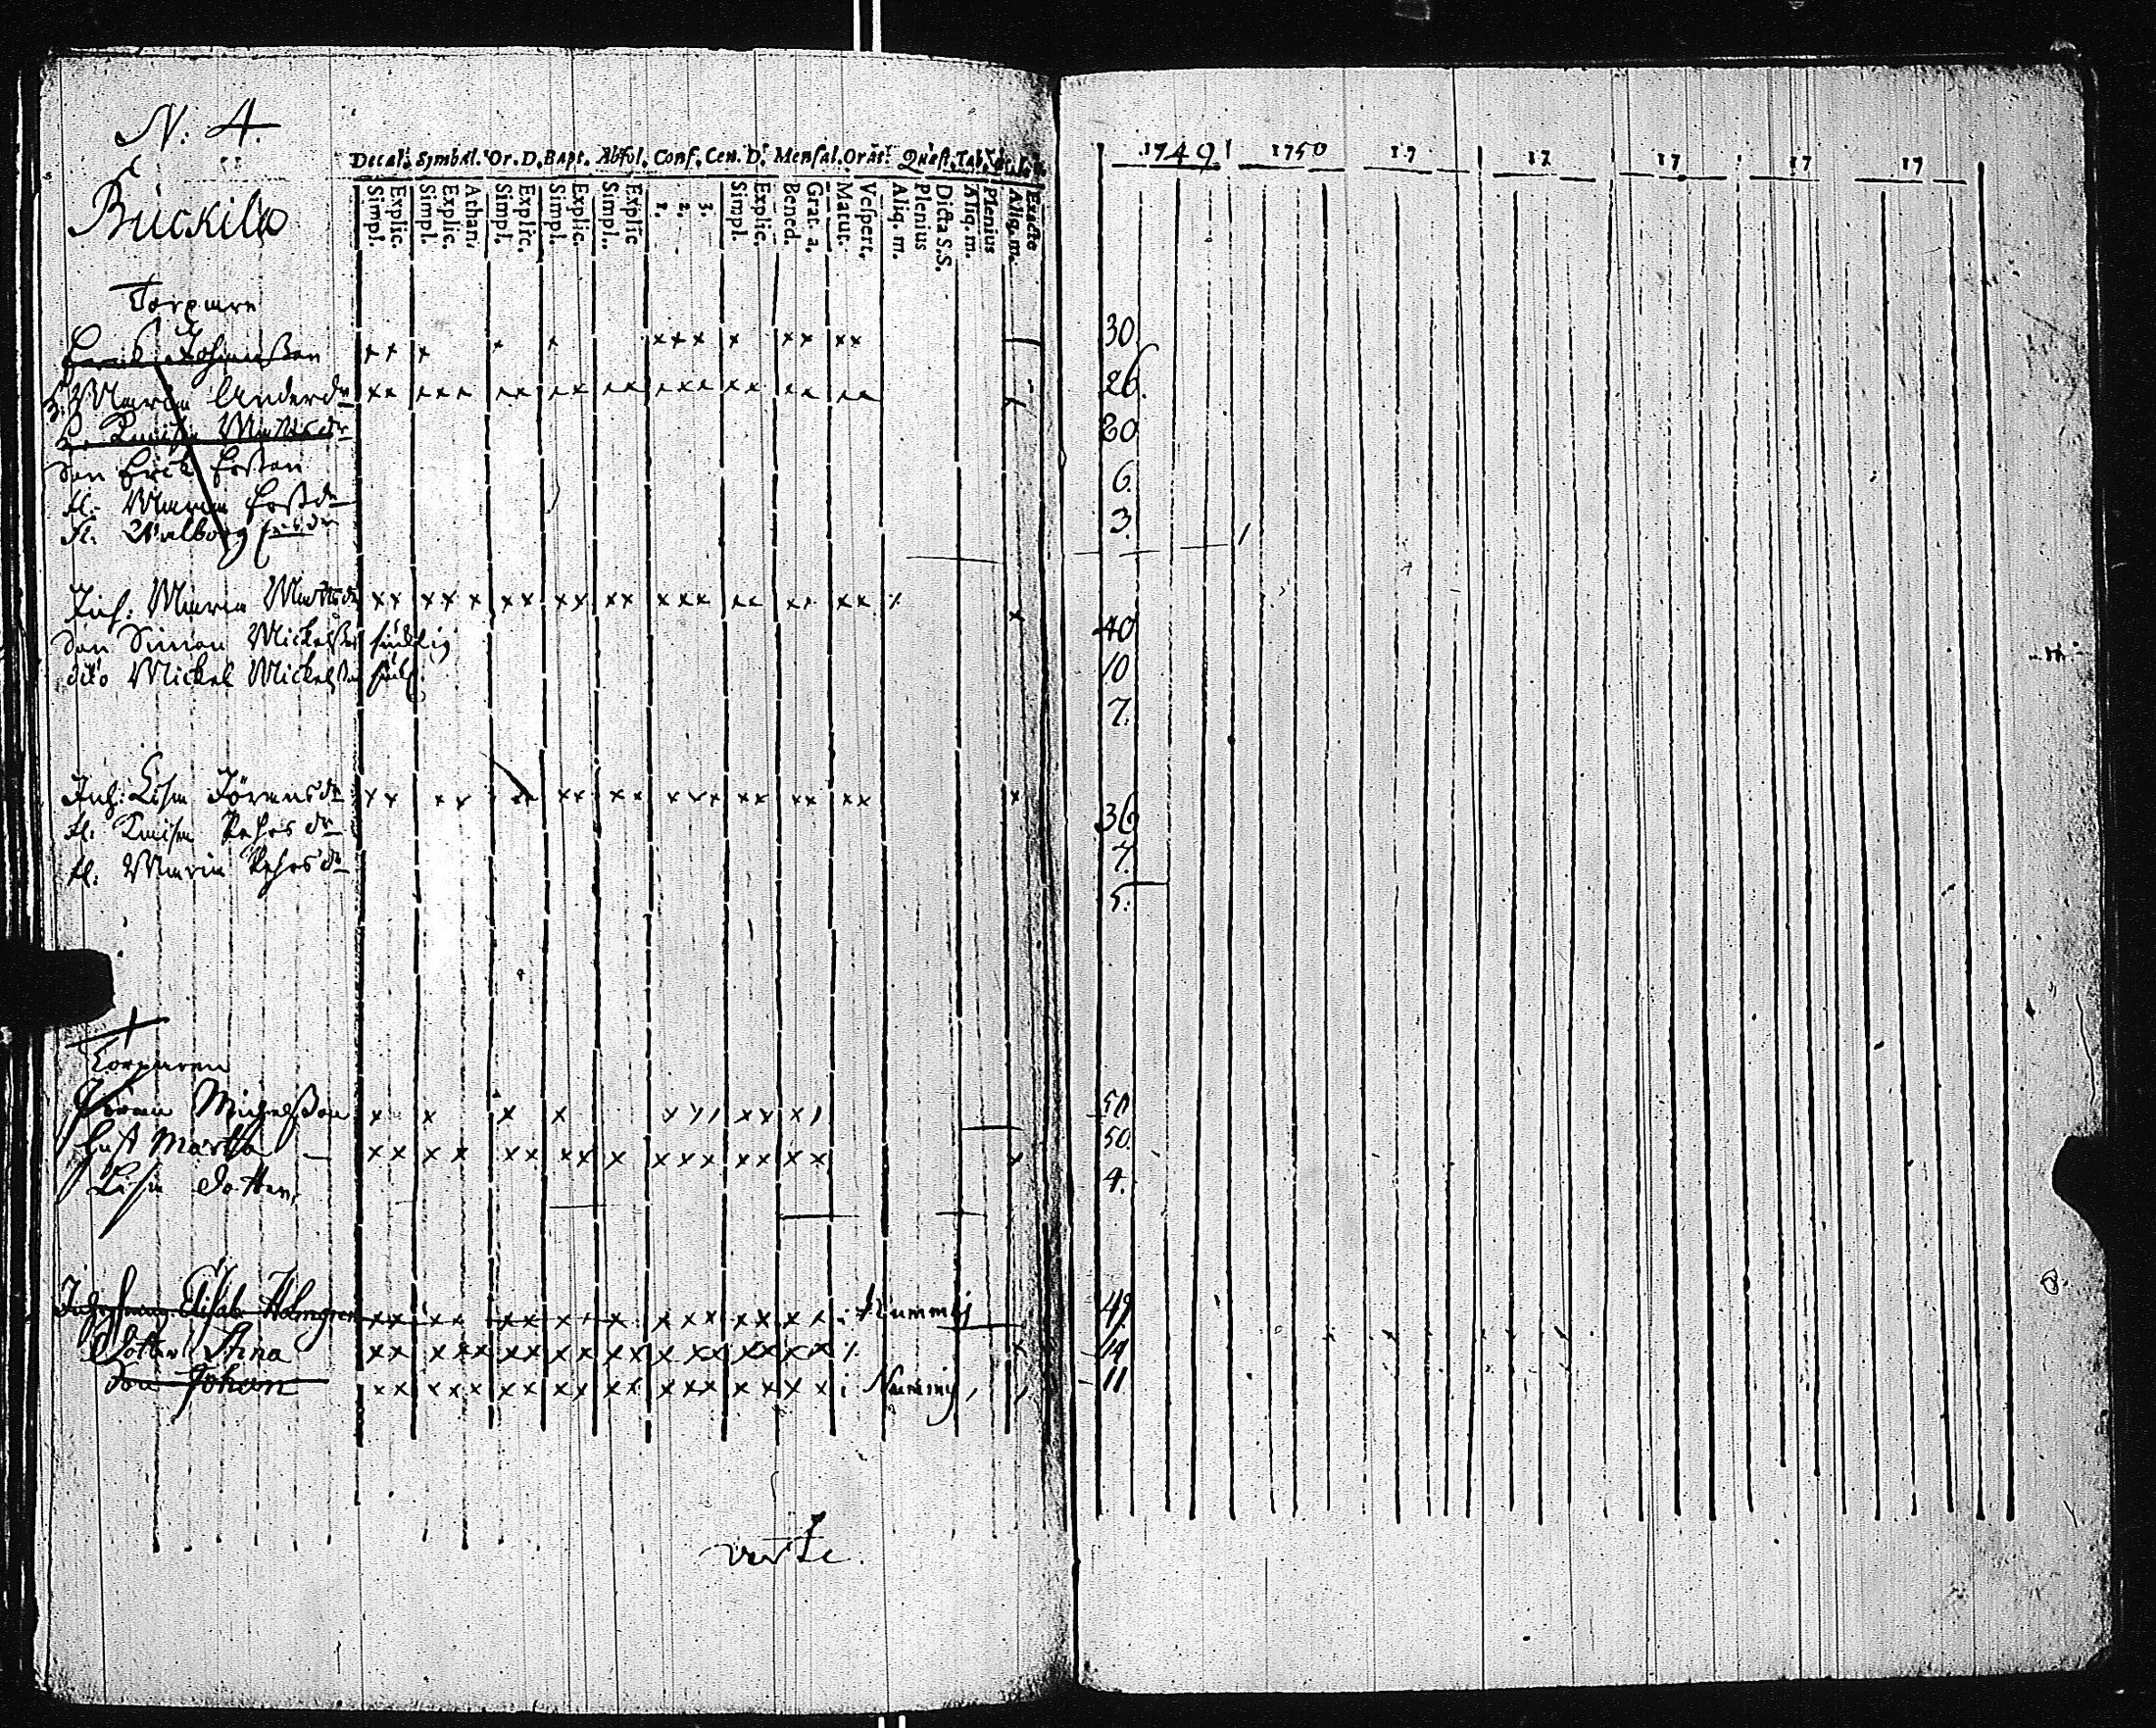 N. 4.
Buckila
Decal. Symbal. Or. D. Bapt. Absol. Conf. Cen. D. Mensal. Orat. Quæst. Tab.
Simpl. Explic. Simpl. Explic. Athan. Simpl. Explic. Simpl. Explic. Simpl. Explic 1. 2. 3. Simpl. Explic. Bened. Grat. a. Matut. Vespert. Aliq. m. Plenius Dicta S.S. Aliq. m. Plenius Aliq. m. Exacte
1749 1750 17 17 17 17 17
Torpare
Erick Johansson x x x x x x x x x x x x x 30
H. Maria Anders dr x x x x x x x x x x x x x x x x x x x x 26.
Mattsdr 20
Son Erick Ersson 6.
d. Maria Ersdr 3.
d. Walborg
Inh: Maria Mattsdr x x x x x x x x x x x x x x x x x x x x x 40
Son Simon Mickelss 10
dito Mickel Mickelss 7.
Inh: Lisa Jörensdr x x x x x x x x x x x x x x x x x x x x 36
d. Caisa Pehrsdr 7.
d. Maria Pehrsdr 5.
Torparen
Jören Michelsson x x x x x x x 50
Hust Martha x x x x x x x x x x x x x x x x x 50.
Lisa dotter 4.
Elisab. Holmgren x x x x x x x x x x x x x x x x Nummis 49
Dotter Stina x x x x x x x x x x x x x x x x x x 19
Son Johan x x x x x x x x x x x x x x x x x x Nummis 11
verte.